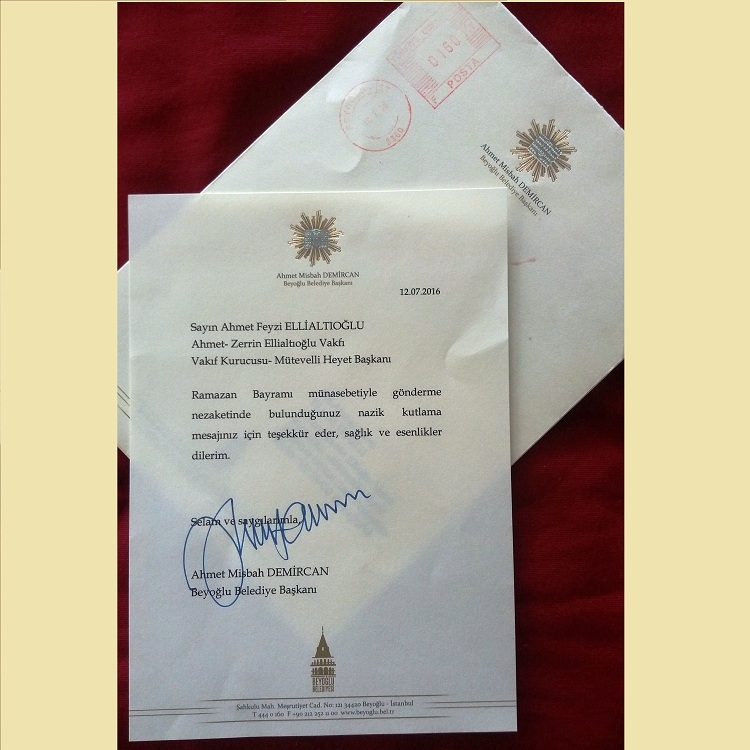 0160
POSTA
Ahmet Misbah DEMİRCAN
Beyoğlu Belediye Başkanı
Ahmet Misbah DEMİRCAN
Beyoğlu Belediye Başkanı
12.07.2016
Sayın Ahmet Feyzi ELLİALTIOĞLU
Ahmet- Zerrin Ellialtıoğlu Vakfı
Vakıf Kurucusu- Mütevelli Heyet Başkanı
Ramazan Bayramı münasebetiyle gönderme
nezaketinde bulunduğunuz nazik kutlama
mesajınız için teşekkür eder, sağlık ve esenlikler
dilerim.
Selam ve saygılarımla,
Ahmet Misbah DEMİRCAN
Beyoğlu Belediye Başkanı
BEYOĞLU
BELEDİYESİ
Şahkulu Mah. Meşrutiyet Cad. No: 121 34420 Beyoğlu - İstanbul
T 444 0 160 F +90 212 252 11 00 www.beyoglu.bel.tr